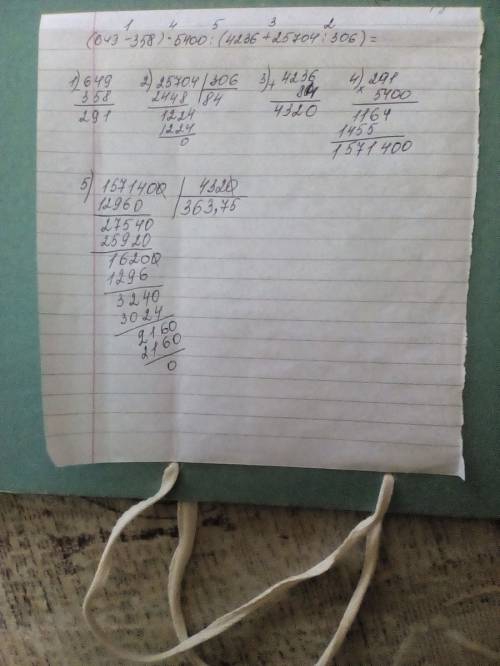 1 4 5 3 2
(643-358)·5400:(4236+25704:306)=
1) 649
358
291
2) 25704 | 306
2448 | 84
1224
1224
0
3) + 4236
84
4320
4) × 291
5400
1164
1455
1571400
5) 1571400 | 4320
12960 | 363,75
27540
25920
16200
1296
3240
3024
2160
2160
0